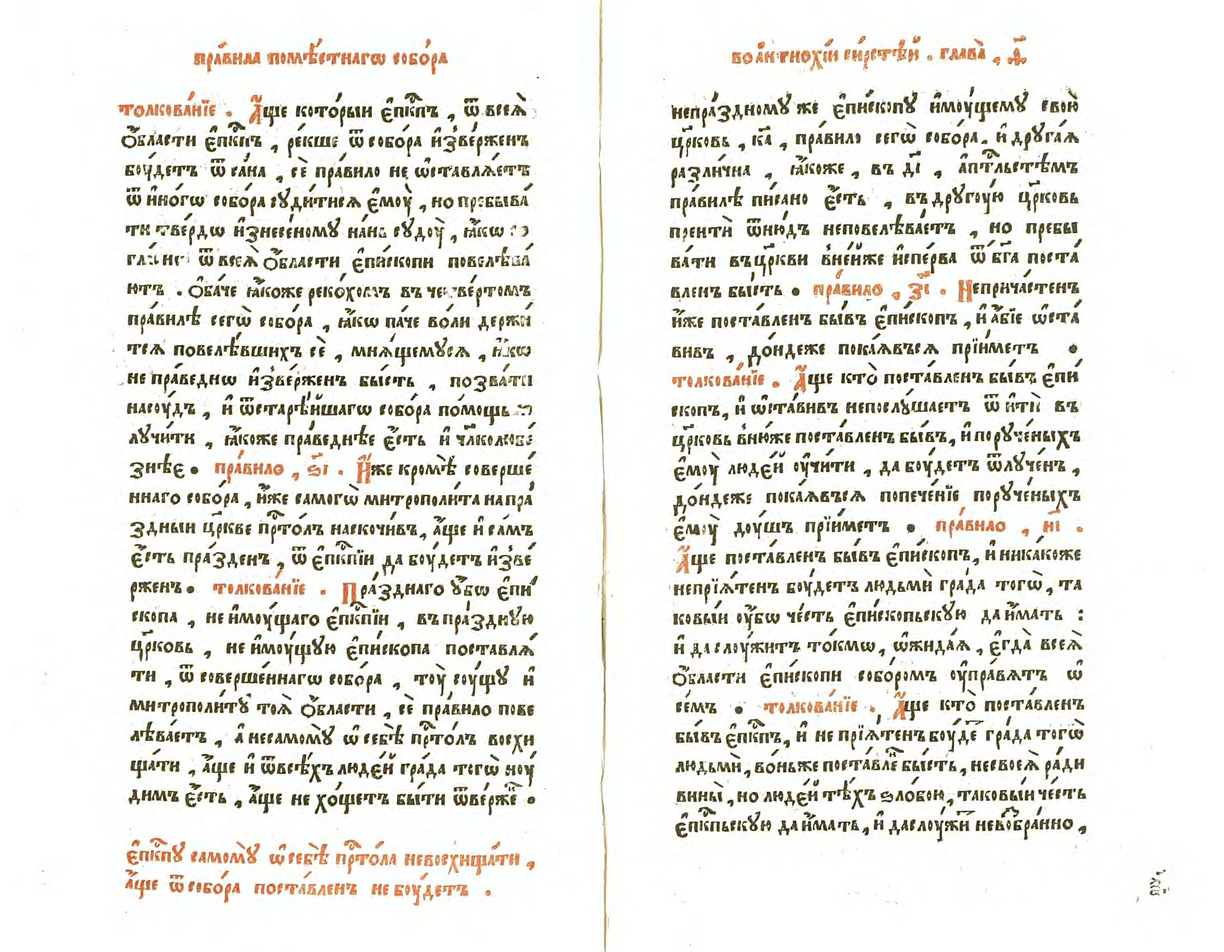 пра́вила помѣ́стнагѡ собо́ра
толкова́нїе . А҆́ще кото́рыи є҆пⷭ҇кпъ , ѿ всеѧ̀
ѻ҆́бласти є҆пⷭ҇кпъ , ре́кше ѿ собора и҆зве́рженъ
боу́детъ ѿ са́на , се́ пра́вило не ѡ҆ставлѧ́етъ
ѿ и҆но́гѡ собо́ра соуди́тисѧ є҆моу̀ , но пребыва́
ти тве́рдѡ и҆знесе́ному нань соудоу̀ , ꙗ҆́кѡ
ѿ всеѧ̀ ѻ҆́бласти є҆пи́скопи повелѣва́
ютъ . Ѻ҆ба́че ꙗ҆́коже реко́хомъ въ четве́ртомъ
пра́вилѣ сегѡ̀ собо́ра , ꙗ҆́кѡ па́че во́ли держа́
тсѧ повелѣ́вшихъ сѐ , мнѧ́щемусѧ , ꙗ҆́кѡ
не пра́веднѡ и҆зве́рженъ бы́сть , позва́ти
насоу́дъ , и҆ ѿ старѣ́йшагѡ собо́ра по́мощь по
лучи́ти , ꙗ҆́коже пра́веднѣе є҆́сть и҆ чл҃колюбе́
знѣе • пра́вило , ѕ҃і . И҆́же кромѣ̀ соверше́
ннаго собо́ра , и҆́же самогѡ̀ митрополи́та на пра́
здныи цр҃кве прⷭ҇то́лъ наскочи́въ , а҆́ще и҆ са́мъ
є҆́сть пра́зденъ , ѿ є҆пⷭ҇кпїи да боу́детъ и҆зве́
рженъ • толкова́нїе . Пра́зднаго ᲂу҆́бѡ є҆пи́
скопа , не и҆моу́щаго є҆пⷭ҇кпїи , въ пра́здную
цр҃ковь , не и҆моу́щую є҆пи́скопа поставлѧ́
ти , ѿ соверше́ннагѡ собо́ра , тоу̀ соу́щу и҆
митрополи́ту тоѧ̀ ѻ҆́бласти , се́ пра́вило пове
лѣва́етъ , а҆ несамомꙋ̀ ѡ҆ себѣ̀ прⷭ҇то́лъ восхи
ща́ти , а҆́ще и҆ ѿ всѣ́хъ люде́й гра́да тогѡ̀ ноу́
димъ є҆́сть , а҆́ще не хо́щетъ бы́ти ѿве́рже •
є҆пⷭ҇кпꙋ самомꙋ̀ ѡ҆ себѣ̀ прⷭ҇то́ла невосхища́ти ,
а҆́ще ѿ собо́ра поста́вленъ не боу́детъ .
во а҆нтиохі́и си́рстѣй . глава̀ ,
непра́здному же є҆пи́скопꙋ и҆моу́щемꙋ свою̀
цр҃ковь , ка҃ , пра́вило сегѡ̀ собо́ра . и҆ друга́ѧ
разли́чна , ꙗ҆́коже , въ д҃і , а҆пⷭ҇тльстѣмъ
пра́вилѣ пи́сано є҆́сть , въ другоу́ю цр҃ковь
преитѝ ѿню́дъ неповелѣва́етъ , но пребы
ва́ти въ цр҃кви в̾не́йже и҆спе́рва ѿ бг҃а поста́
вленъ бы́сть • пра́вило , з҃і . Непричастенъ
и҆́же поста́вленъ бы́въ є҆пи́скопъ , и҆ а҆́бїе ѡ҆ста́
вивъ , до́ндеже пока́ѧвъсѧ прїи́метъ •
толкова́нїе . А҆́ще кто̀ поста́вленъ бы́въ є҆пи́
скопъ , и҆ ѡ҆ста́вивъ непослу́шаетъ ѿитѝ въ
цр҃ковь в̾ню́же поста́вленъ бы́въ , и҆ пору́ченыхъ
є҆моу̀ люде́й оу҆чи́ти , да боу́детъ ѿлу́ченъ ,
до́ндеже пока́ѧвъсѧ попече́нїе пору́ченыхъ
є҆моу̀ доу́шъ прїи́метъ • пра́вило , и҃і .
А҆́ще поста́вленъ бы́въ є҆пи́скопъ , и҆ ника́коже
непрїѧ́тенъ боу́детъ людьмѝ гра́да тогѡ̀ , та
ковы́и оу҆́бѡ че́сть є҆пи́скопьскую да и҆́мать :
и҆ да слоу́житъ то́кмѡ , ѡ҆жида́ѧ , є҆гда̀ всеѧ̀
ѻ҆́бласти є҆пи́скопи собо́ромъ оу҆пра́вѧтъ ѡ҆
се́мъ • толкова́нїе . А҆́ще кто̀ поста́вленъ
бы́въ є҆пⷭ҇кпъ , и҆ не прїѧ́тенъ боу́де гра́да тогѡ̀
людьмѝ , во́ньже поста́вле бы́сть , несвоеѧ̀ ра́ди
вины̀ , но люде́й тѣ́хъ ѕло́бою , таковы́и че́сть
є҆пⷭ҇кпьскую да и҆́мать , и҆ даслоу́жи невозбра́нно ,